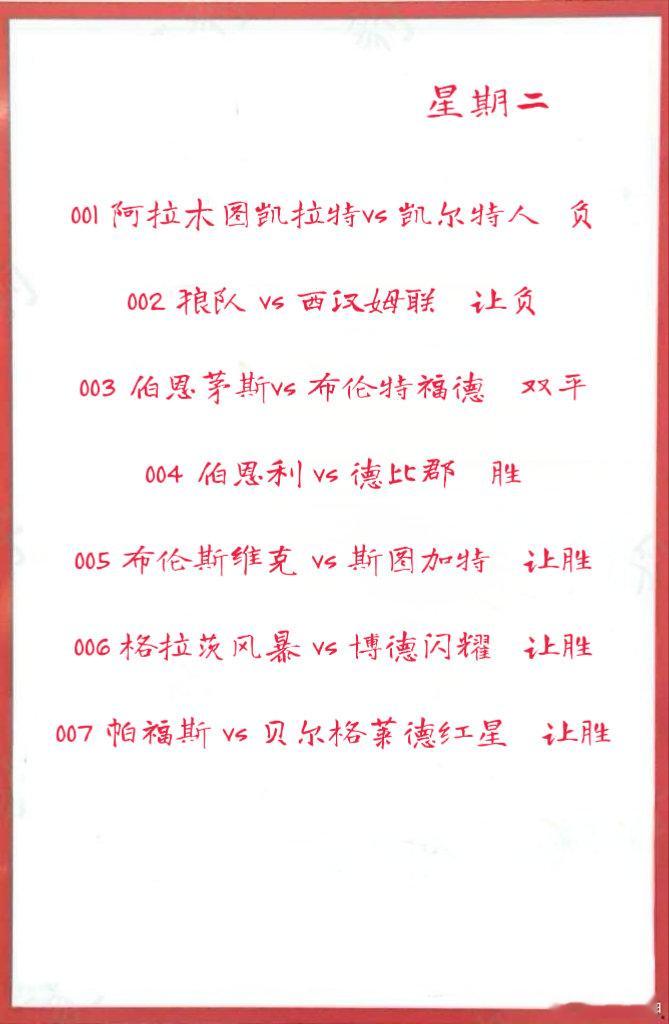 星期二
001 阿拉木图凯拉特vs 凯尔特人 负
002 狼队 vs 西汉姆联 让负
003 伯恩茅斯vs 布伦特福德 双平
004 伯恩利 vs 德比郡 胜
005 布伦斯维克 vs 斯图加特 让胜
006 格拉茨风暴 vs 博德闪耀 让胜
007 帕福斯 vs 贝尔格莱德红星 让胜